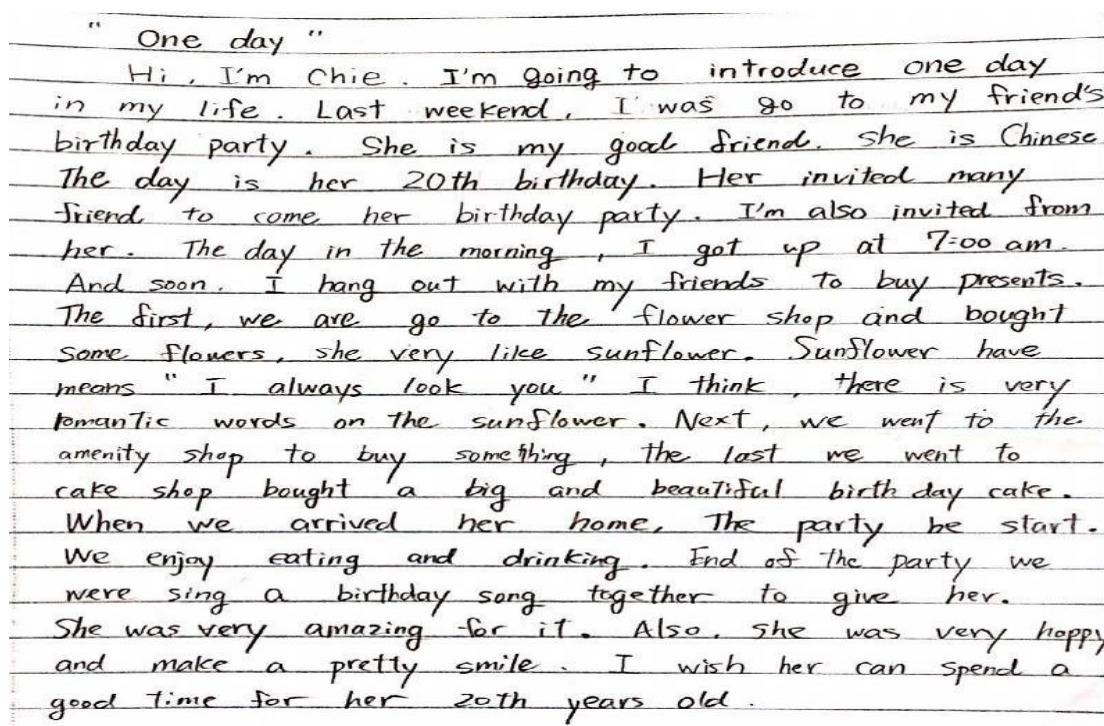 " One day "
Hi, I'm Chie. I'm going to introduce one day
in my life. Last weekend, I was go to my friend's
birthday party. She is my good friend. She is Chinese
The day is her 20th birthday. Her invited many
friend to come her birthday party. I'm also invited from
her. The day in the morning, I got up at 7:00 am.
And soon. I hang out with my friends to buy presents.
The first, we are go to the flower shop and bought
some flowers, she very like sunflower. Sunflower have
means " I always look you " I think, there is very
romantic words on the sunflower. Next, we went to the
amenity shop to buy something, the last we went to
cake shop bought a big and beautiful birth day cake.
When we arrived her home, The party be start.
We enjoy eating and drinking. End of the party we
were sing a birthday song together to give her.
She was very amazing for it. Also, she was very happy
and make a pretty smile. I wish her can spend a
good time for her 20th years old.